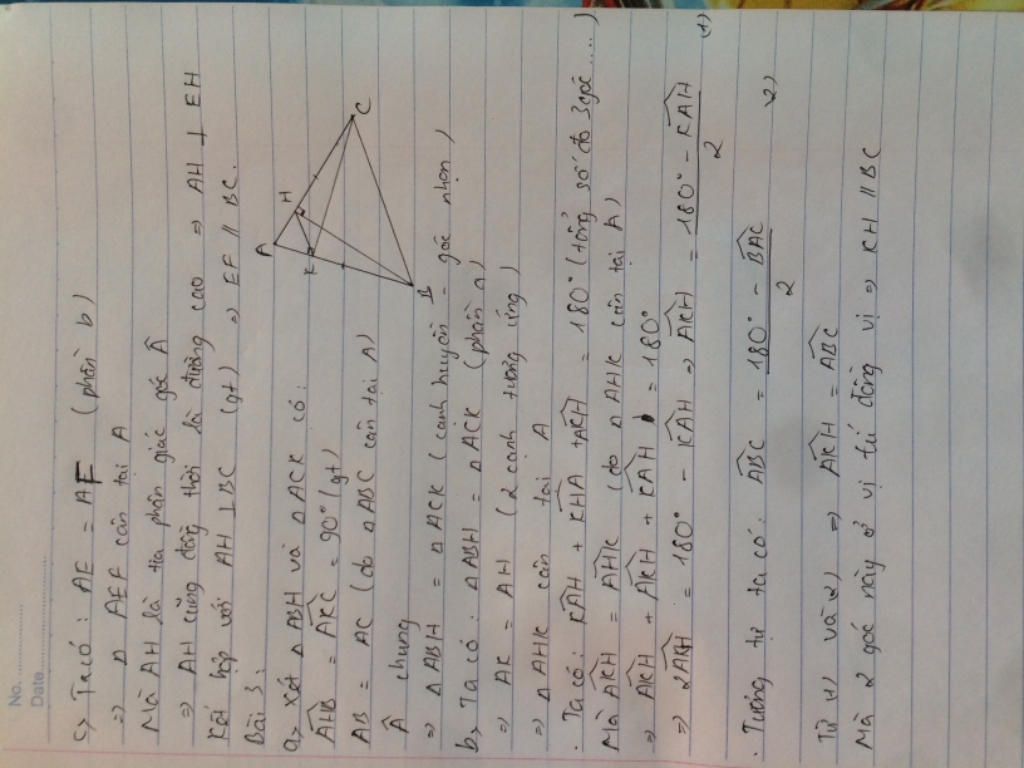 No. ............
Date. ............
c, Ta có : AE = AF (phần b)
=> Δ AEF cân tại A
Mà AH là tia phân giác góc Â
=> AH cũng đồng thời là đường cao => AH ⊥ EH
Kết hợp với AH ⊥ BC (gt) => EF // BC.
Bài 3 :
a, Xét Δ ABH và Δ ACK có :
A
H
K
B
C
\widehat{AHB} = \widehat{AKC} = 90° (gt)
AB = AC (do Δ ABC cân tại A)
 chung
=> Δ ABH = Δ ACK (cạnh huyền - góc nhọn)
b, Ta có : Δ ABH = Δ ACK (phần a)
=> AK = AH (2 cạnh tương ứng)
=> Δ AHK cân tại A
. Ta có : \widehat{KAH} + \widehat{KHA} + \widehat{AKH} = 180° (tổng số đo 3 góc ....)
Mà \widehat{AKH} = \widehat{AHK} (do Δ AHK cân tại A)
=> \widehat{AKH} + \widehat{AKH} + \widehat{KAH} = 180°
=> 2\widehat{AKH} = 180° - \widehat{KAH} => \widehat{AKH} = \frac{180° - \widehat{KAH}}{2} (1)
. Tương tự ta có : \widehat{ABC} = \frac{180° - \widehat{BAC}}{2} (2)
Từ (1) và (2) => \widehat{AKH} = \widehat{ABC}
Mà 2 góc này ở vị trí đồng vị => KH // BC